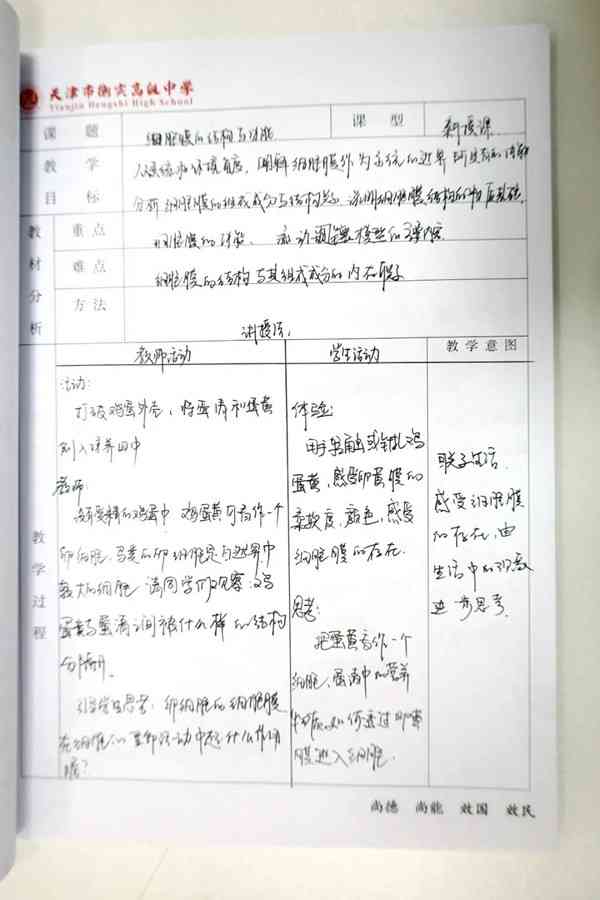 天津市衡实高级中学
Tianjin Hengshi High School
课 题 细胞膜的结构与功能 课 型 新授课
教 学 从系统和环境角度,阐释细胞膜作为系统的边界所具有的功能
目 标 分析细胞膜的组成成分与结构关系,说明细胞膜结构的物质基础.
教材分析
重点 细胞膜的功能、流动镶嵌模型的主要内容
难点 细胞膜的结构与其组成成分的内在联系
方法 讲授法.
教师活动 学生活动 教学意图
教学过程
活动:
打破鸡蛋外壳,将蛋清和蛋黄
倒入培养皿中
教师:
没有受精的鸡蛋中,鸡蛋黄可看作一个
卵细胞,鸟类的卵细胞是自然界中
较大的细胞 请同学们观察:鸡
蛋黄与蛋清之间被什么样的结构
分隔开.
引导学生思考:卵细胞的细胞膜
在细胞的生命活动中起什么作用
呢?
体验:
用手触角或针扎鸡
蛋黄,感受卵黄膜的
柔软度,颜色,感受
细胞膜的存在.
思考:
把蛋黄看作一个
细胞,蛋清中的营养
物质如何透过卵黄
膜进入细胞.
联系生活,
感受细胞膜
的存在,由
生活中的现象
进一步思考.
尚德 尚能 效国 效民